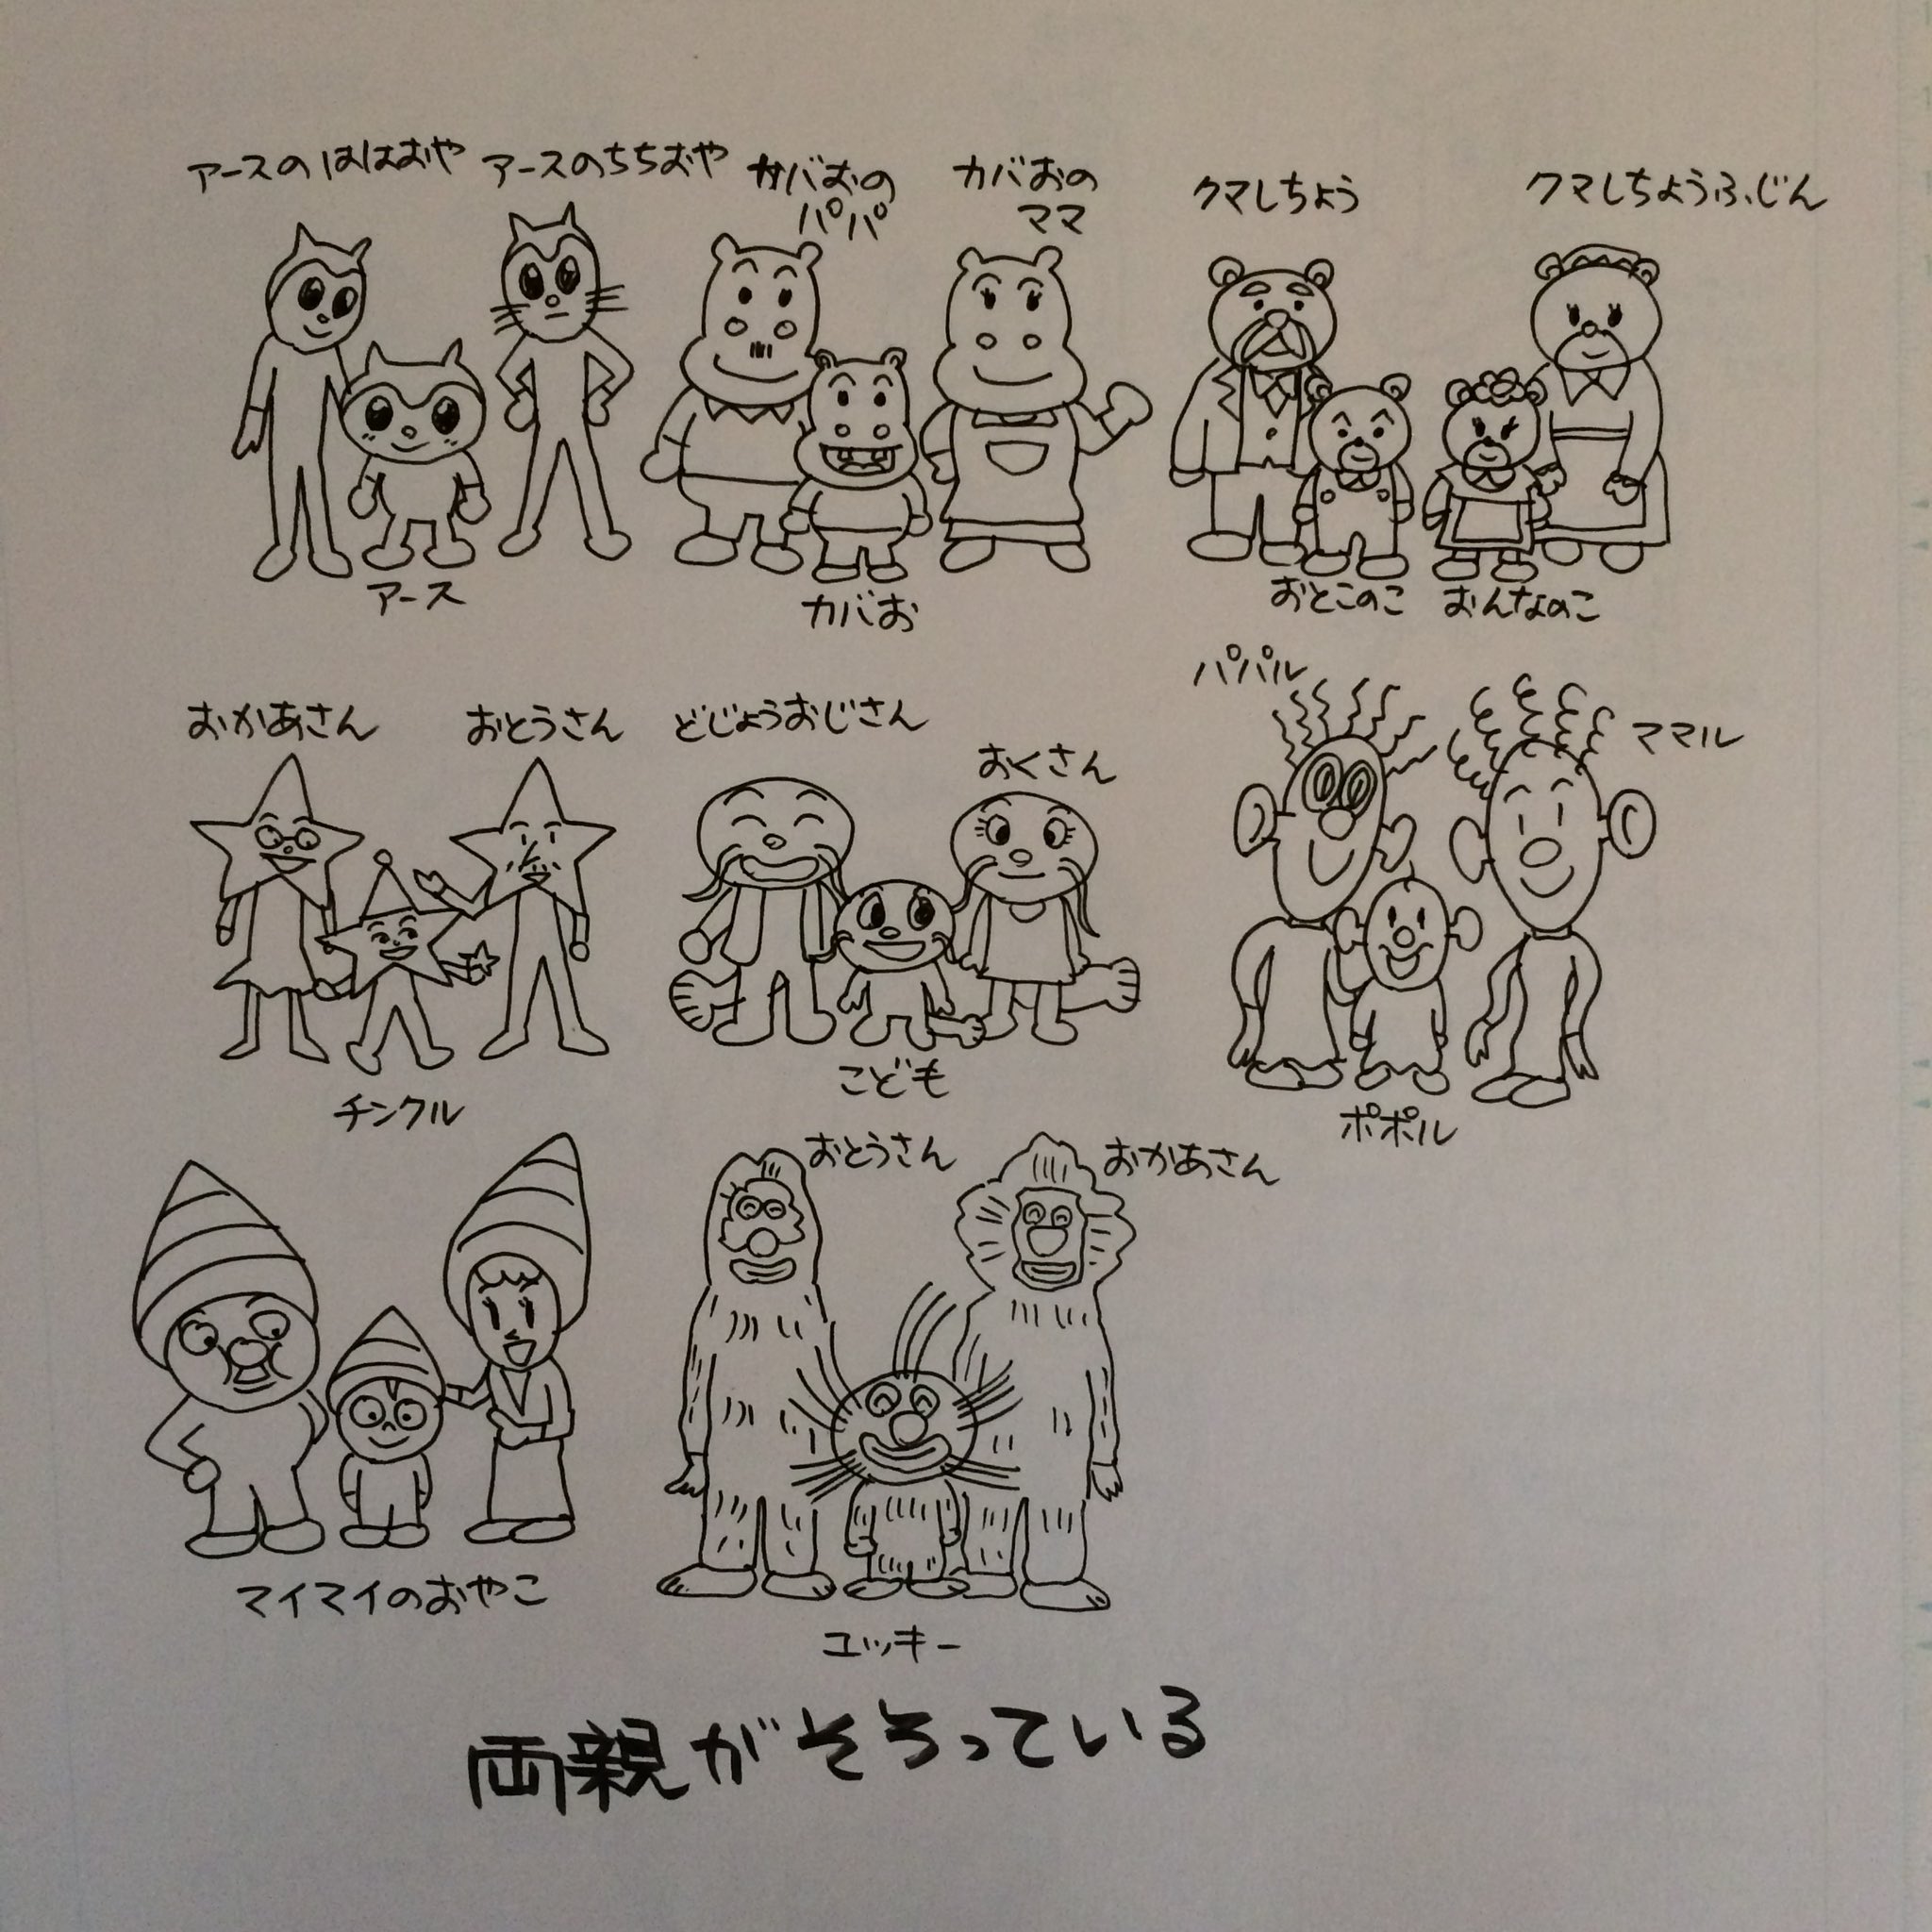 アースのははおや
アースのちちおや
カバおの
パパ
カバおの
ママ
クマしちょう
クマしちょうふじん
アース
カバお
おとこのこ
おんなのこ
おかあさん
おとうさん
どじょうおじさん
おくさん
パパル
ママル
チンクル
こども
ポポル
おとうさん
おかあさん
マイマイのおやこ
ユッキー
両親がそろっている